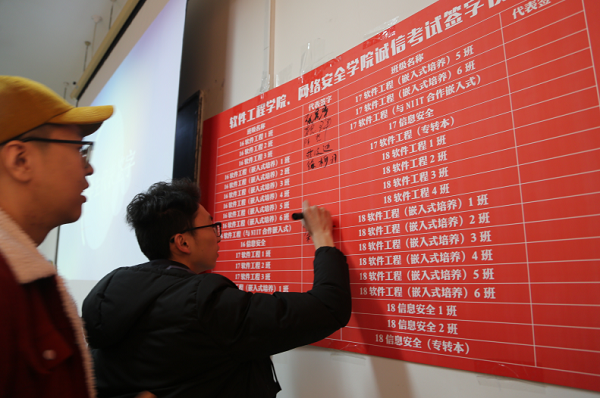 软件工程学院、网络安全学院诚信考试签字
班级名称 代表签字
16 软件工程 1 班
16 软件工程 2 班
16 软件工程 3 班
16 软件工程（嵌入式培养）1 班
16 软件工程（嵌入式培养）2 班
16 软件工程（嵌入式培养）3 班
16 软件工程（嵌入式培养）4 班
软件工程（嵌入式培养）5 班
软件工程（嵌入式培养）6 班
软件工程（与 NIIT 合作嵌入式）
16 信息安全
17 软件工程 1 班
17 软件工程 2 班
17 软件工程 3 班
（嵌入式培养）1 班
班级名称 代表签
17 软件工程（嵌入式培养）5 班
17 软件工程（嵌入式培养）6 班
17 软件工程（与 NIIT 合作嵌入式）
17 信息安全
17 软件工程（专转本）
18 软件工程 1 班
18 软件工程 2 班
18 软件工程 3 班
18 软件工程 4 班
18 软件工程（嵌入式培养）1 班
18 软件工程（嵌入式培养）2 班
18 软件工程（嵌入式培养）3 班
18 软件工程（嵌入式培养）4 班
18 软件工程（嵌入式培养）5 班
18 软件工程（嵌入式培养）6 班
18 信息安全 1 班
18 信息安全 2 班
18 信息安全（专转本）